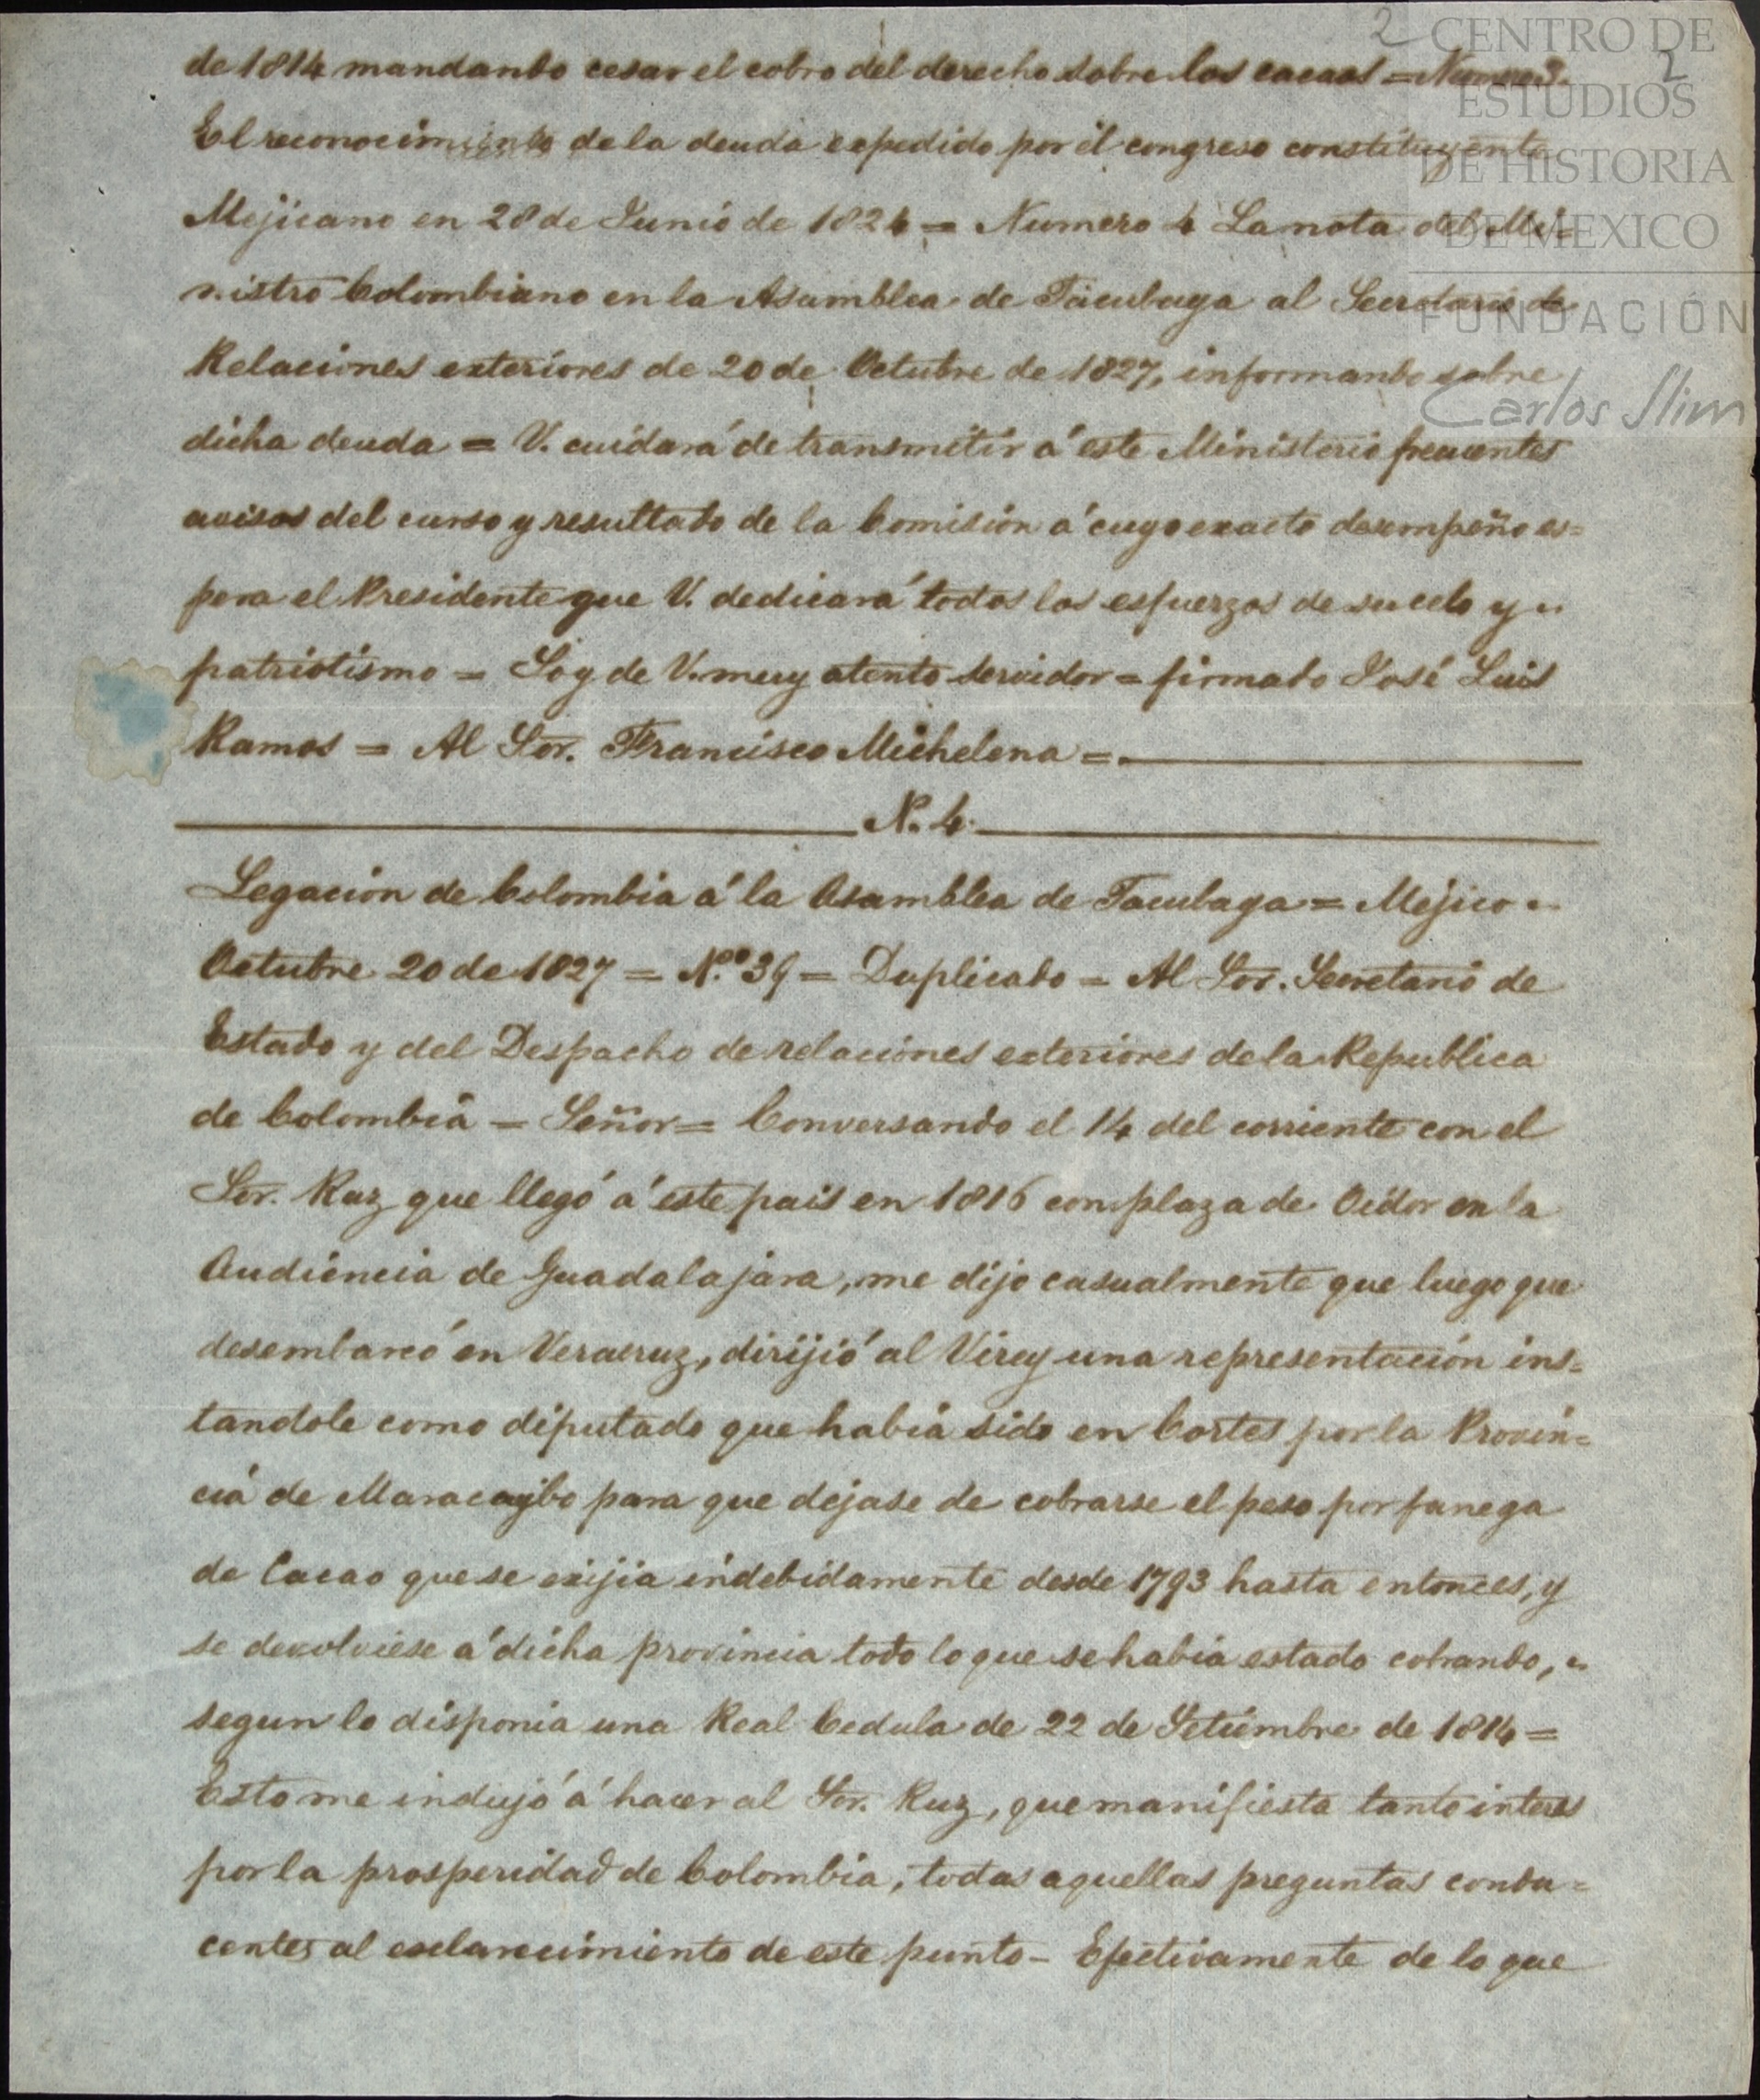 2
CENTRO DE
ESTUDIOS
DE HISTORIA
DE MEXICO
FUNDACIÓN
Carlos Slim
2
de 1814 mandando cesar el cobro del derecho sobre los cacaos = Numero 3.
El reconocimiento de la deuda expedido por el congreso constituyente
Mejicano en 28 de Junio de 1824 = Numero 4 La nota del Mi=
nistro Colombiano en la Asamblea de Tacubaya al Secretario de
Relaciones exteriores de 20 de Octubre de 1827, informando sobre
dicha deuda = V. cuidará de transmitir á este Ministerio frecuentes
avisos del curso y resultado de la Comisión á cuyo exacto desempeño es=
pera el Presidente que V. dedicará todos los esfuerzos de su celo y =
patriotismo = Soy de V. muy atento servidor = firmado José Luis
Ramos = Al Sor. Francisco Michelena =
N. 4.
Legación de Colombia á la Asamblea de Tacubaya = Méjico =
Octubre 20 de 1827 = N.º 39 = Duplicado = Al Sor. Secretario de
Estado y del Despacho de relaciones exteriores de la Republica
de Colombia = Señor = Conversando el 14 del corriente con el
Sor. Ruz que llegó á este pais en 1816 con plaza de Oidor en la
Audiencia de Guadalajara, me dijo casualmente que luego que
desembarcó en Veracruz, dirijió al Virey una representación ins=
tandole como diputado que habia sido en Cortes por la Provin=
cia de Maracaybo para que dejase de cobrarse el peso por fanega
de Cacao que se exijia indebidamente desde 1793 hasta entonces, y
se devolviese á dicha provincia todo lo que se habia estado cobrando, =
segun lo disponia una Real Cedula de 22 de Setiembre de 1814 =
Esto me indujó á hacer al Sor. Ruz, que manifiesta tanto interes
por la prosperidad de Colombia, todas aquellas preguntas condu=
centes al esclarecimiento de este punto - Efectivamente de lo que